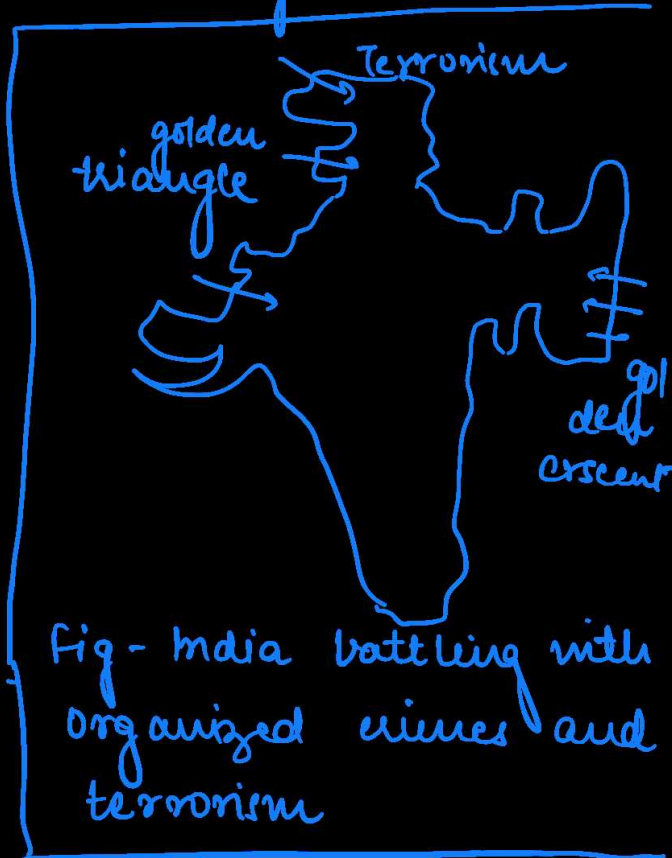 Terrorism
golden
triangle
gol
den
crscent
Fig - India battling with
organized crimes and
terrorism